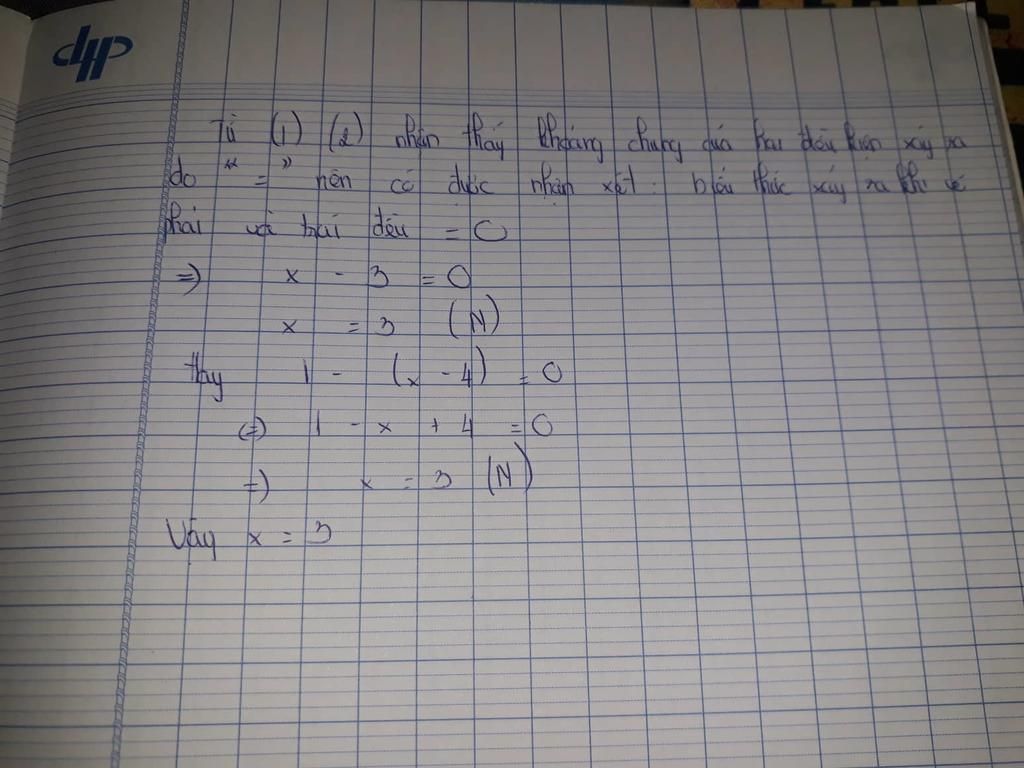 dHp
Từ (1) (2) nhận thấy khoảng chung quá hai điều kiện xảy ra
do " = " nên có được nhận xét : biểu thức xảy ra khi vế
phải và trái đều = 0
=> x - 3 = 0
x = 3 (N)
Hay 1 - (x - 4) = 0
(=) 1 - x + 4 = 0
=) x = 3 (N)
Vậy x = 3